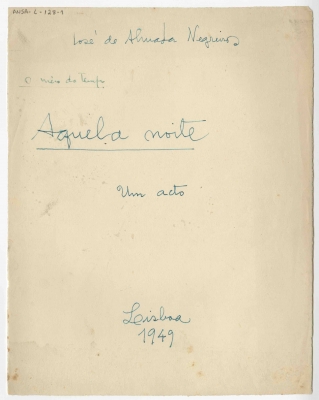 ANSA-C-128-1
José de Almada Negreiros
Aquela noite
Um acto
Lisboa
1949